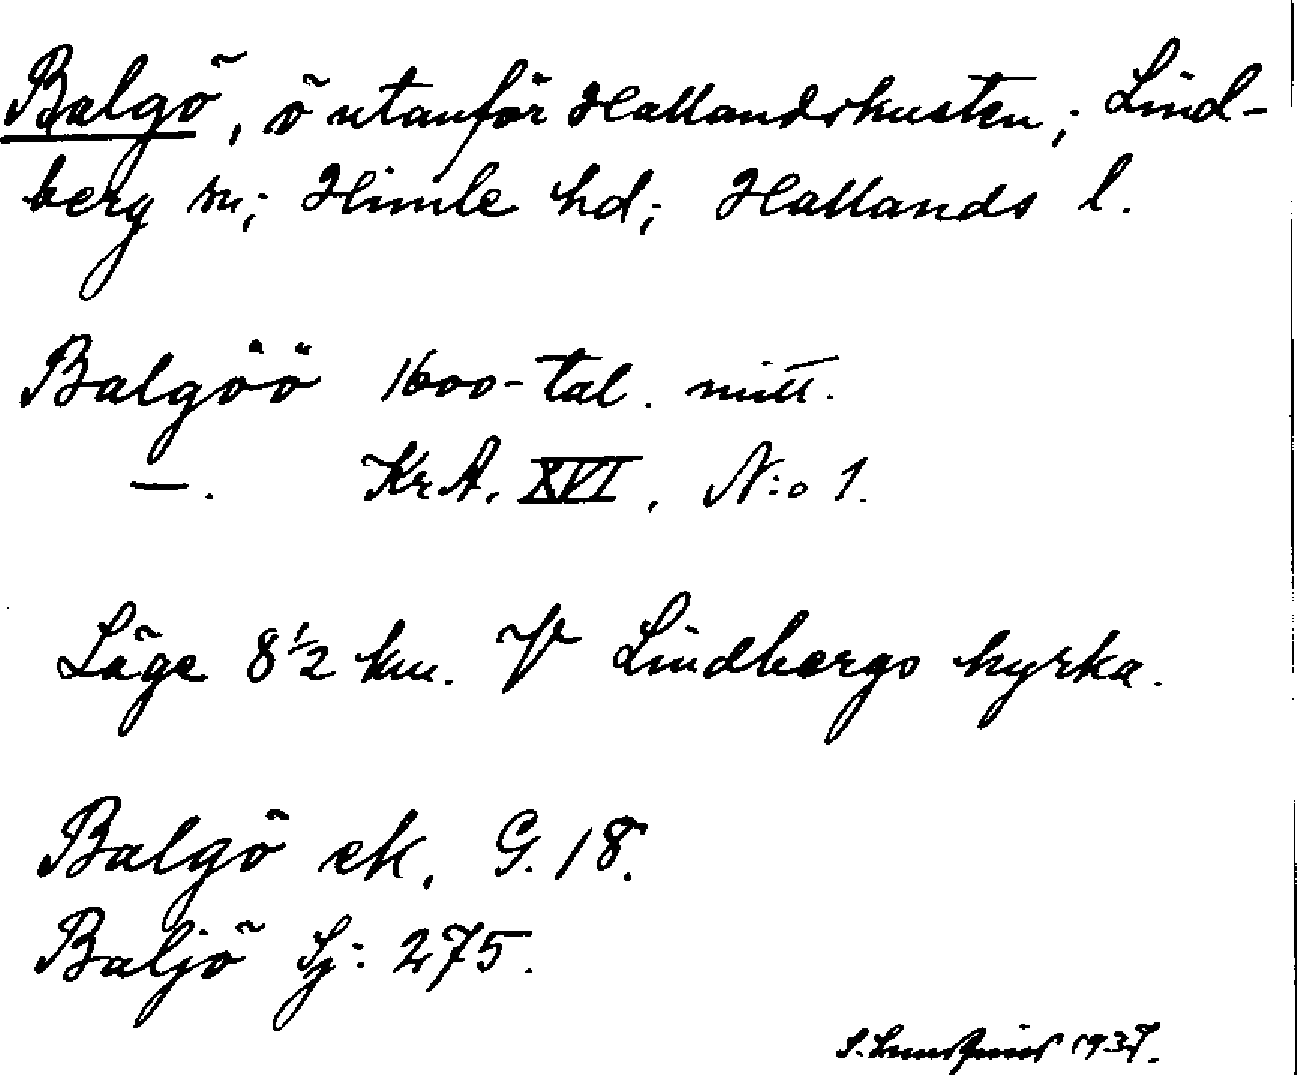 Balgö, ö utanför Hallandskusten; Lind-
berg sn; Himle hd; Hallands l.
Balgöö 1600-tal. mitt.
—. KrA. XVI, N:o 1.
Läge 8 1/2 km. V Lindbergs kyrka.
Balgö ek. G. 18.
Baljö Sj: 275.
S. 1937.